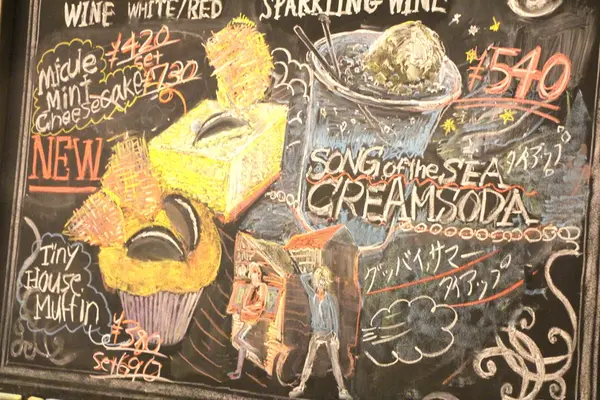 WINE WHITE/RED
SPARKLING WINE
Micuie
Mint
Cheesecake
¥420
set
¥730
NEW
¥540
SONG of the SEA タイアップ!
CREAMSODA
グッバイ、サマー
タイアップ
Tiny
House
Muffin
¥380
set 690